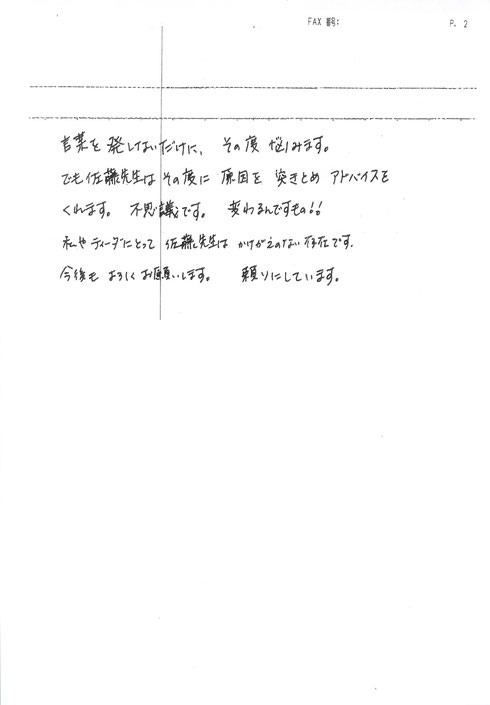 FAX 番号: P. 2
言葉を発しないだけに、その度悩みます。
でも佐藤先生はその度に原因を突きとめアドバイスを
くれます。不思議です。変わるんですもの!!
私やティーダにとって佐藤先生はかけがえのない存在です.
今後もよろしくお願いします。頼りにしています。